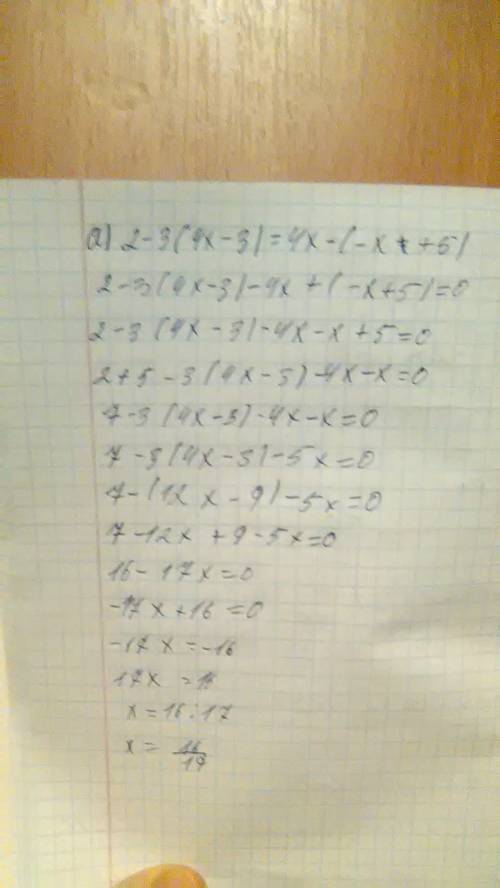 а) 2-3(4x-3)=4x-(-x+5)
2-3(4x-3)-4x+(-x+5)=0
2-3(4x-3)-4x-x+5=0
2+5-3(4x-3)-4x-x=0
7-3(4x-3)-4x-x=0
7-3(4x-3)-5x=0
7-(12x-9)-5x=0
7-12x+9-5x=0
16-17x=0
-17x+16=0
-17x=-16
17x=16
x=16:17
x=16/17